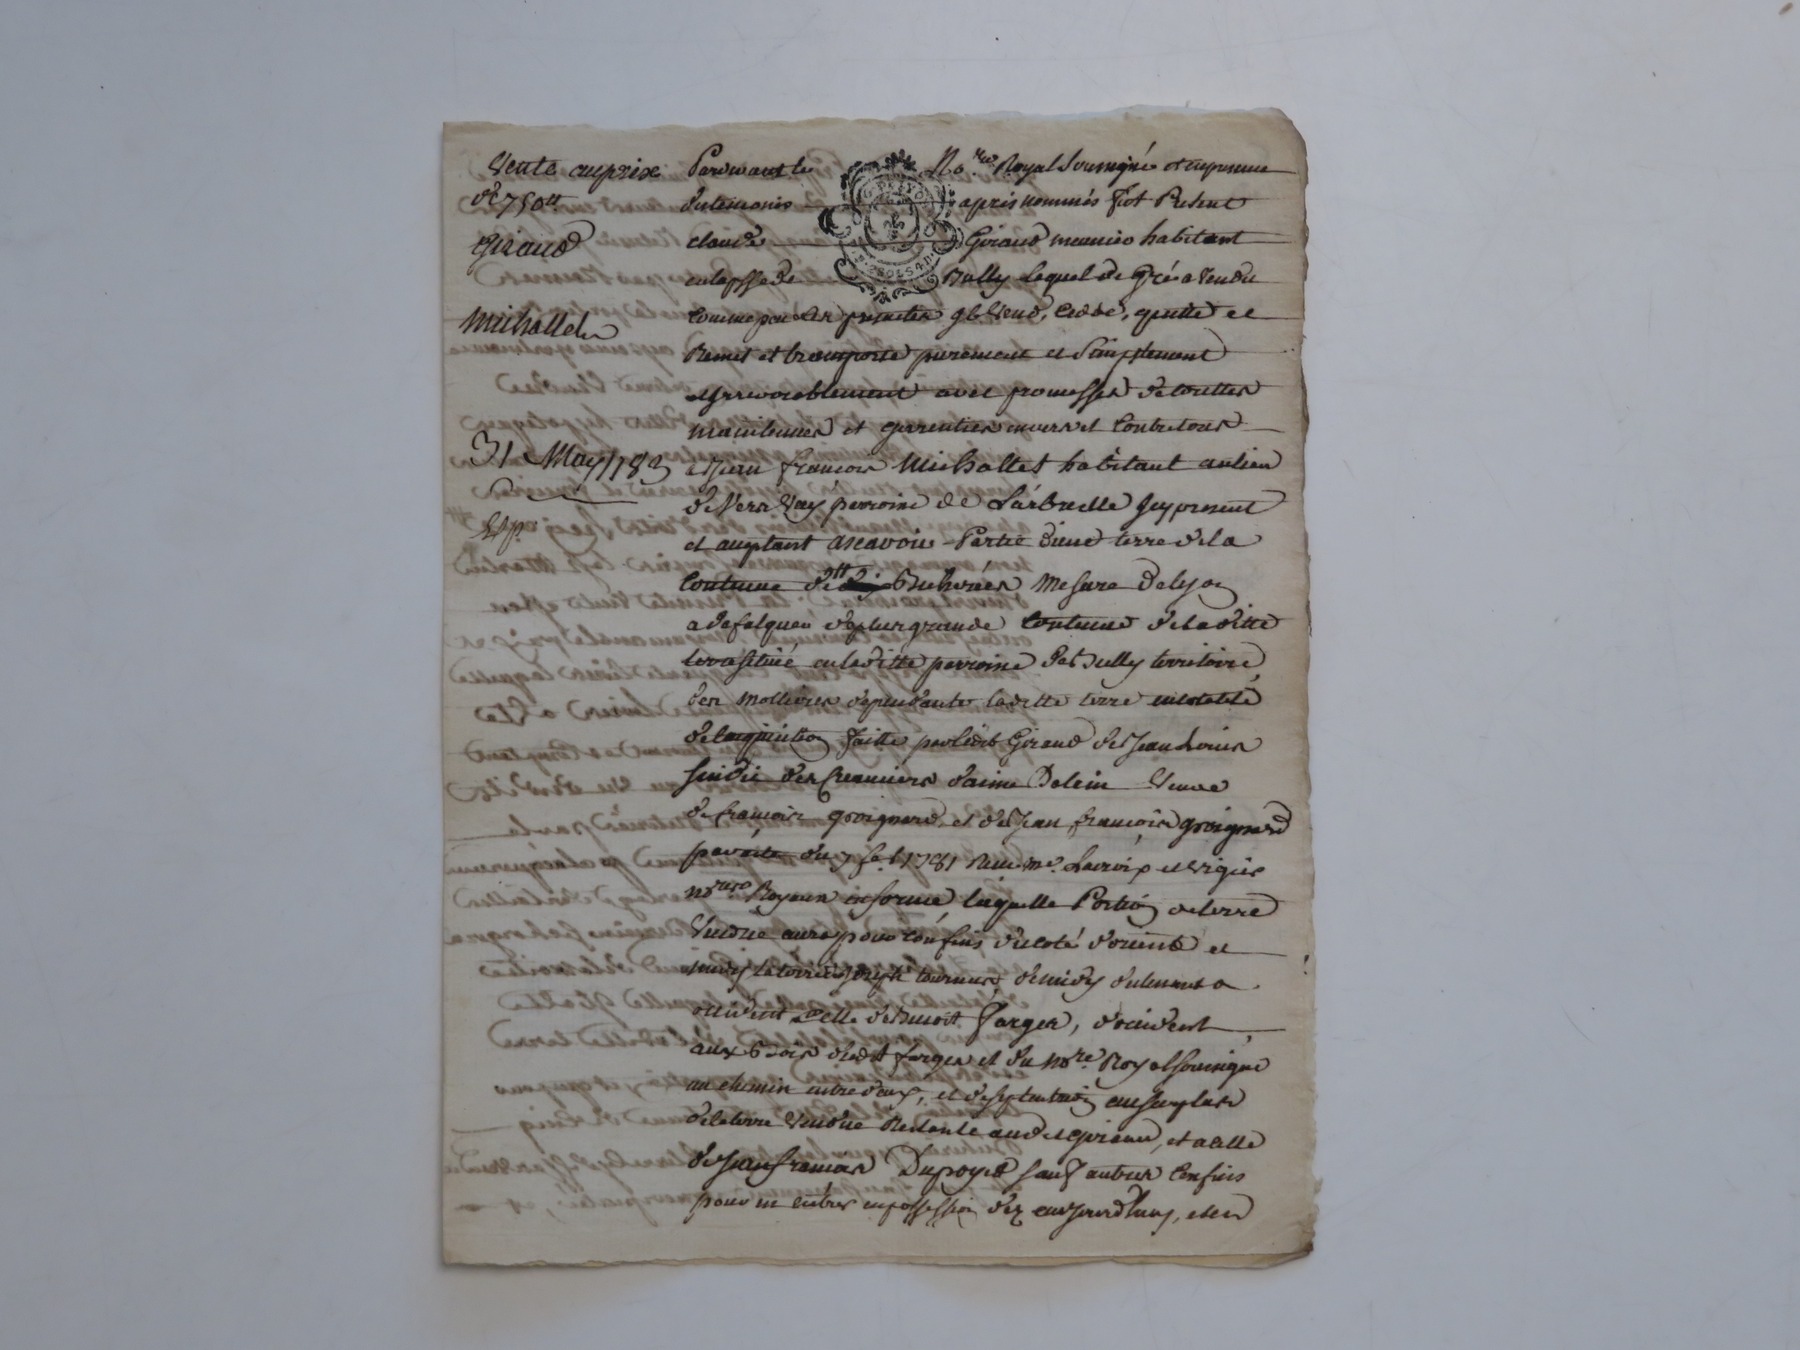 Vente au prix
de 750tt
Giraud
Michallet
31 May 1783
Exp.
Pardevant le No.re Royal soussigné et en presence
des temoins apres nommés fut Present
claude Giraud meunier habitant
en la psse de Bully lequel de gré a vendu
comme par les presentes il vend, cede, quitte et
Remet et transporte purement et simplement
et irrevocablement avec promesses de touttes
maintenues et garrenties envers et contre tous
a Jean françois Michallet habitant au lieu
de Vers Vay parroisse de Larbrelle icy present
et aceptant ascavoir Partie d'une terre de la
contenue de Bicherées Mesure de Lyon
a defalquer de plus grande contenue de la ditte
terre scituée en la ditte parroisse de Bully territoire
des mollieres dependante la ditte terre en totalité
de l'acquisition faitte par ledit Giraud de Jean Louis
sindic des creanciers d'aimé veuve
de françois groignard, et de Jean françois groignard
par acte du 7 1781 Recu me. Lacroix et
no.res Royaux en forme laquelle Portion de terre
Vendue aura pour confins du coté d'orient et
midy la terre de Joseph de midy tendant a
occident celle de Benoit Farges, d'occident
aux Bois dudit farges et du no.re Royal soussigné
un chemin entre deux, et de septentrion au surplus
de la terre vendue Restante audit Giraud, et a celle
de Jean francois Dupoyet sauf autres confins
pour en entrer en possession dez aujourd'huy, et en